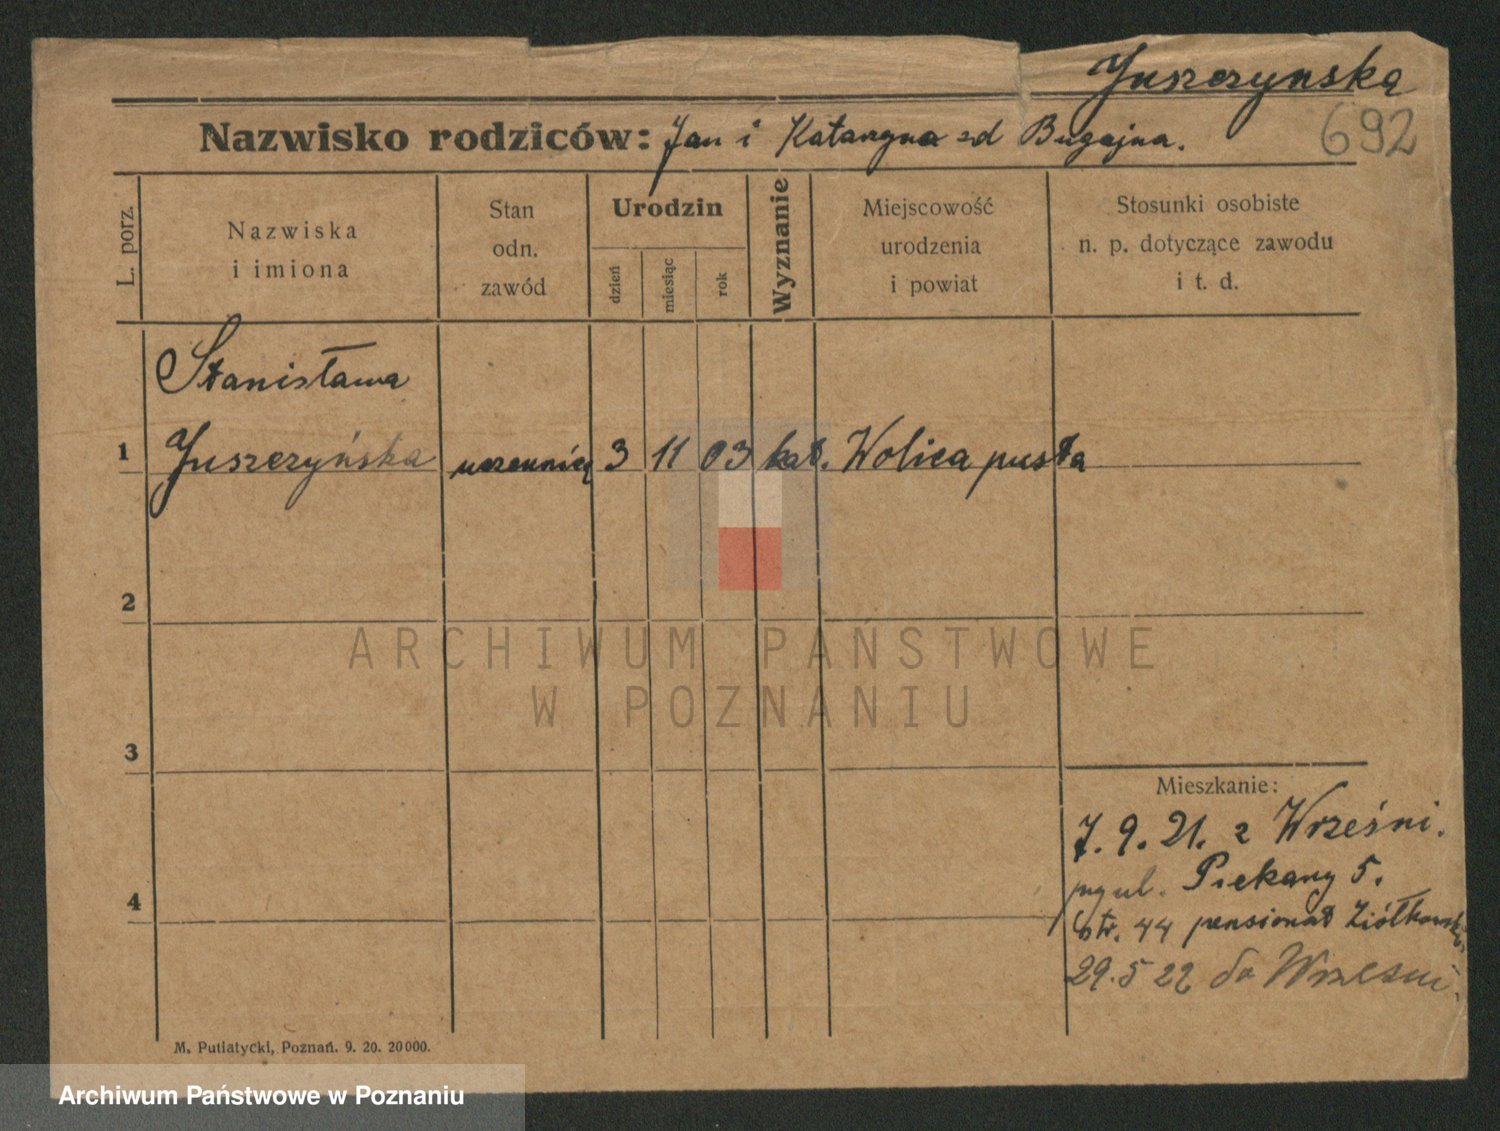 Juszczynska
692
Nazwisko rodziców: Jan i Katarzyna zd Bugajna.
L. porz.
Nazwiska
i imiona
Stan
odn.
zawód
Urodzin
dzień
miesiąc
rok
Wyznanie
Miejscowość
urodzenia
i powiat
Stosunki osobiste
n. p. dotyczące zawodu
i t. d.
Stanisława
1 Juszczyńska uczennica 3 11 03 kat. Wolica pusta
2
3
4
Mieszkanie:
7. 9. 21. z Wrześni.
przy ul. Piekary 5.
str. 44 pensionat
29. 5 22 do Wrzesni.
M. Putiatycki, Poznań. 9. 20. 20000.
ARCHIWUM PAŃSTWOWE
W POZNANIU
Archiwum Państwowe w Poznaniu